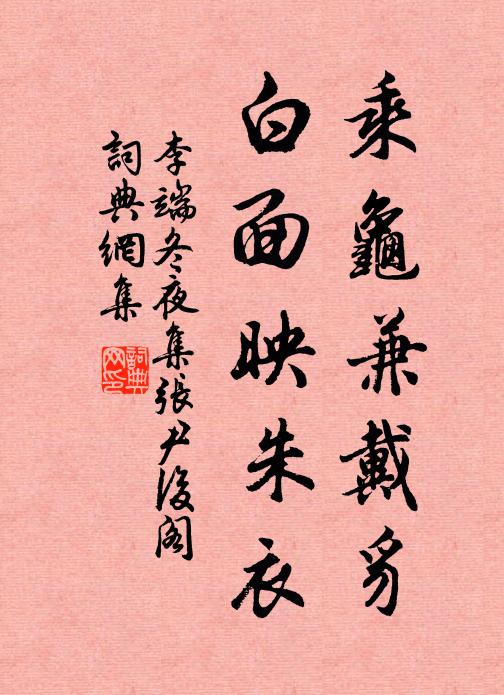 乘龜兼戴豸
白面映朱衣
李端冬夜集張尹後閣
詞典網集
詞典网印